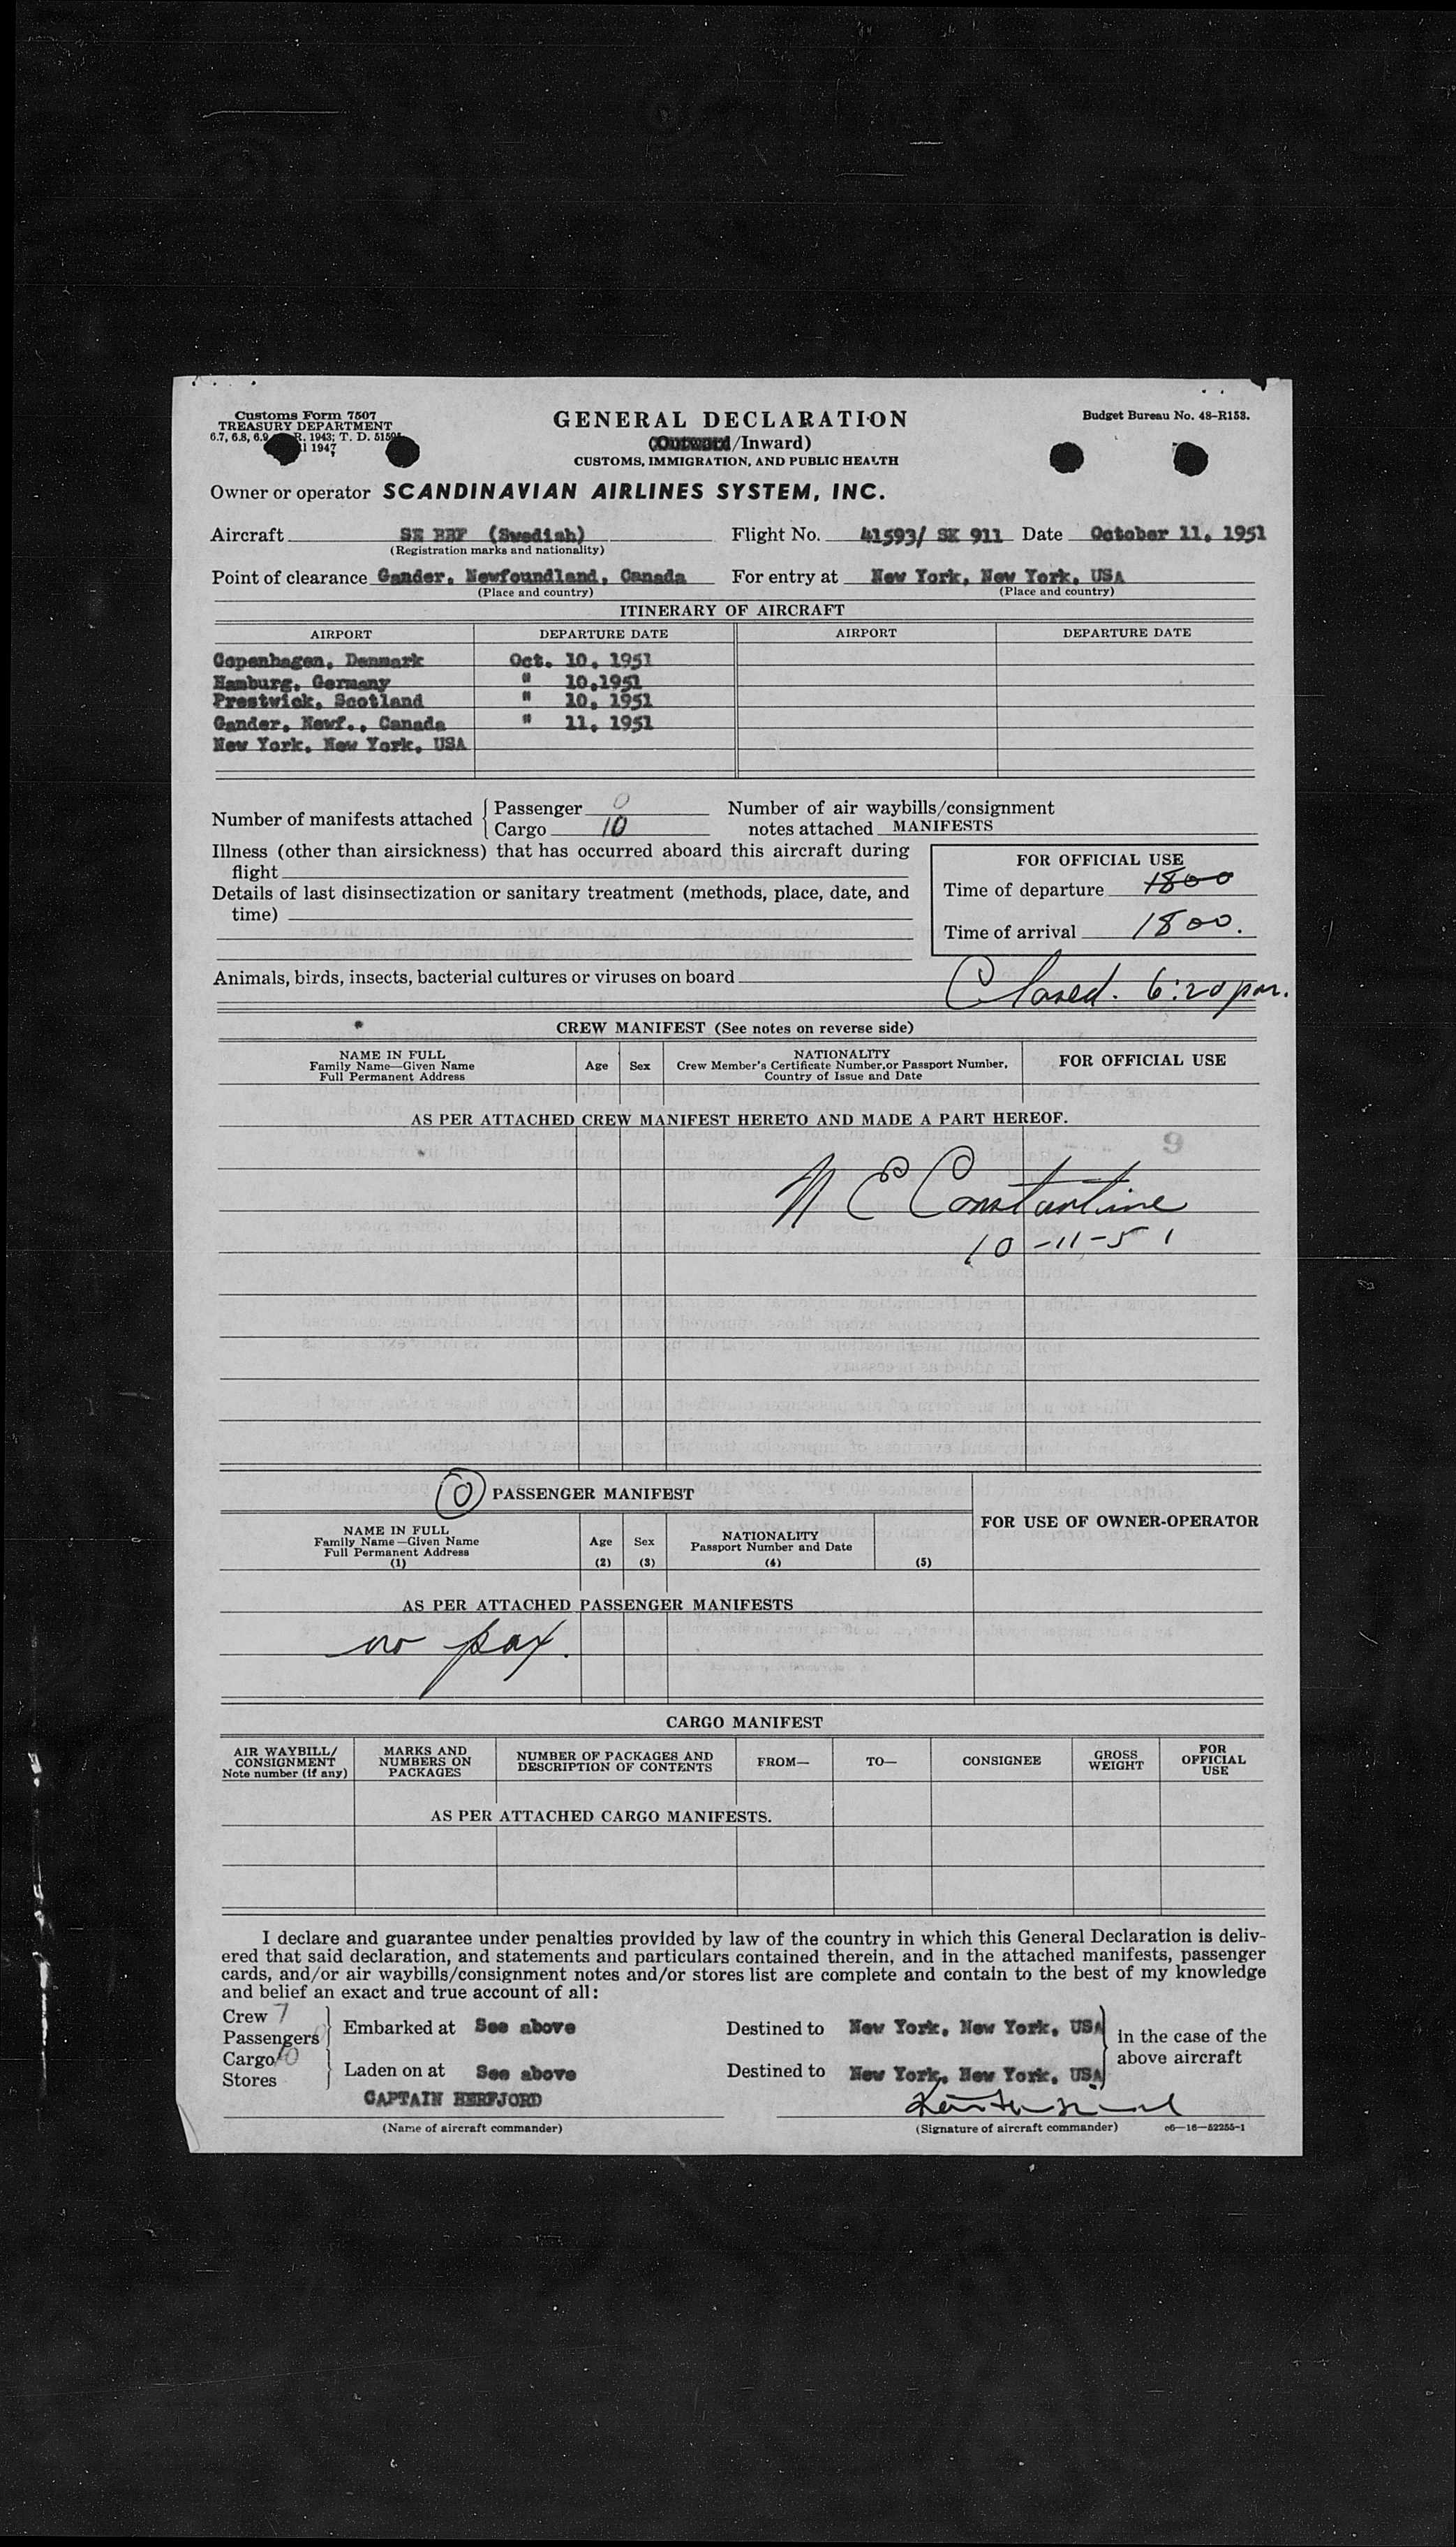 Customs Form 7507
TREASURY DEPARTMENT
6.7, 6.8, 6.9 R. 1943; T. D. 5159
1947
GENERAL DECLARATION
(Outward/Inward)
CUSTOMS, IMMIGRATION, AND PUBLIC HEALTH
Budget Bureau No. 48-R153.
Owner or operator SCANDINAVIAN AIRLINES SYSTEM, INC.
Aircraft SE BBF (Swedish) Flight No. 41593/ SK 911 Date October 11, 1951
(Registration marks and nationality)
Point of clearance Gander, Newfoundland, Canada For entry at New York, New York, USA
(Place and country) (Place and country)
ITINERARY OF AIRCRAFT
AIRPORT DEPARTURE DATE AIRPORT DEPARTURE DATE
Copenhagen, Denmark Oct. 10, 1951
Hamburg, Germany " 10,1951
Prestwick, Scotland " 10, 1951
Gander, Newf., Canada " 11, 1951
New York, New York, USA
Number of manifests attached { Passenger 0
Cargo 10
Number of air waybills/consignment
notes attached MANIFESTS
Illness (other than airsickness) that has occurred aboard this aircraft during
flight
Details of last disinsectization or sanitary treatment (methods, place, date, and
time)
FOR OFFICIAL USE
Time of departure 1800
Time of arrival 1800.
Animals, birds, insects, bacterial cultures or viruses on board
Closed. 6:20 pm.
CREW MANIFEST (See notes on reverse side)
NAME IN FULL
Family Name—Given Name
Full Permanent Address
Age
Sex
NATIONALITY
Crew Member's Certificate Number,or Passport Number,
Country of Issue and Date
FOR OFFICIAL USE
AS PER ATTACHED CREW MANIFEST HERETO AND MADE A PART HEREOF.
N E Constantine
10-11-51
0 PASSENGER MANIFEST
FOR USE OF OWNER-OPERATOR
NAME IN FULL
Family Name—Given Name
Full Permanent Address
(1)
Age
(2)
Sex
(3)
NATIONALITY
Passport Number and Date
(4)
(5)
AS PER ATTACHED PASSENGER MANIFESTS
no pax.
CARGO MANIFEST
AIR WAYBILL/
CONSIGNMENT
Note number (if any)
MARKS AND
NUMBERS ON
PACKAGES
NUMBER OF PACKAGES AND
DESCRIPTION OF CONTENTS
FROM—
TO—
CONSIGNEE
GROSS
WEIGHT
FOR
OFFICIAL
USE
AS PER ATTACHED CARGO MANIFESTS.
I declare and guarantee under penalties provided by law of the country in which this General Declaration is deliv-
ered that said declaration, and statements and particulars contained therein, and in the attached manifests, passenger
cards, and/or air waybills/consignment notes and/or stores list are complete and contain to the best of my knowledge
and belief an exact and true account of all:
Crew 7
Passengers
Embarked at See above Destined to New York, New York, USA
Cargo 10
Stores
Laden on at See above Destined to New York, New York, USA
in the case of the
above aircraft
CAPTAIN HERFJORD
(Name of aircraft commander) (Signature of aircraft commander) c6—16—52255-1